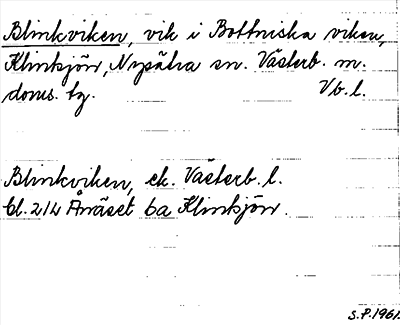 Blinkviken, vik i Bottniska viken,
Klinkjön, Nysätra sn. Västerb. m.
doms. tg. Vb. l.
Blinkviken, ek. Västerb. l.
bl. 212 Ånäset ba Klinkjön.
S.P. 1961.